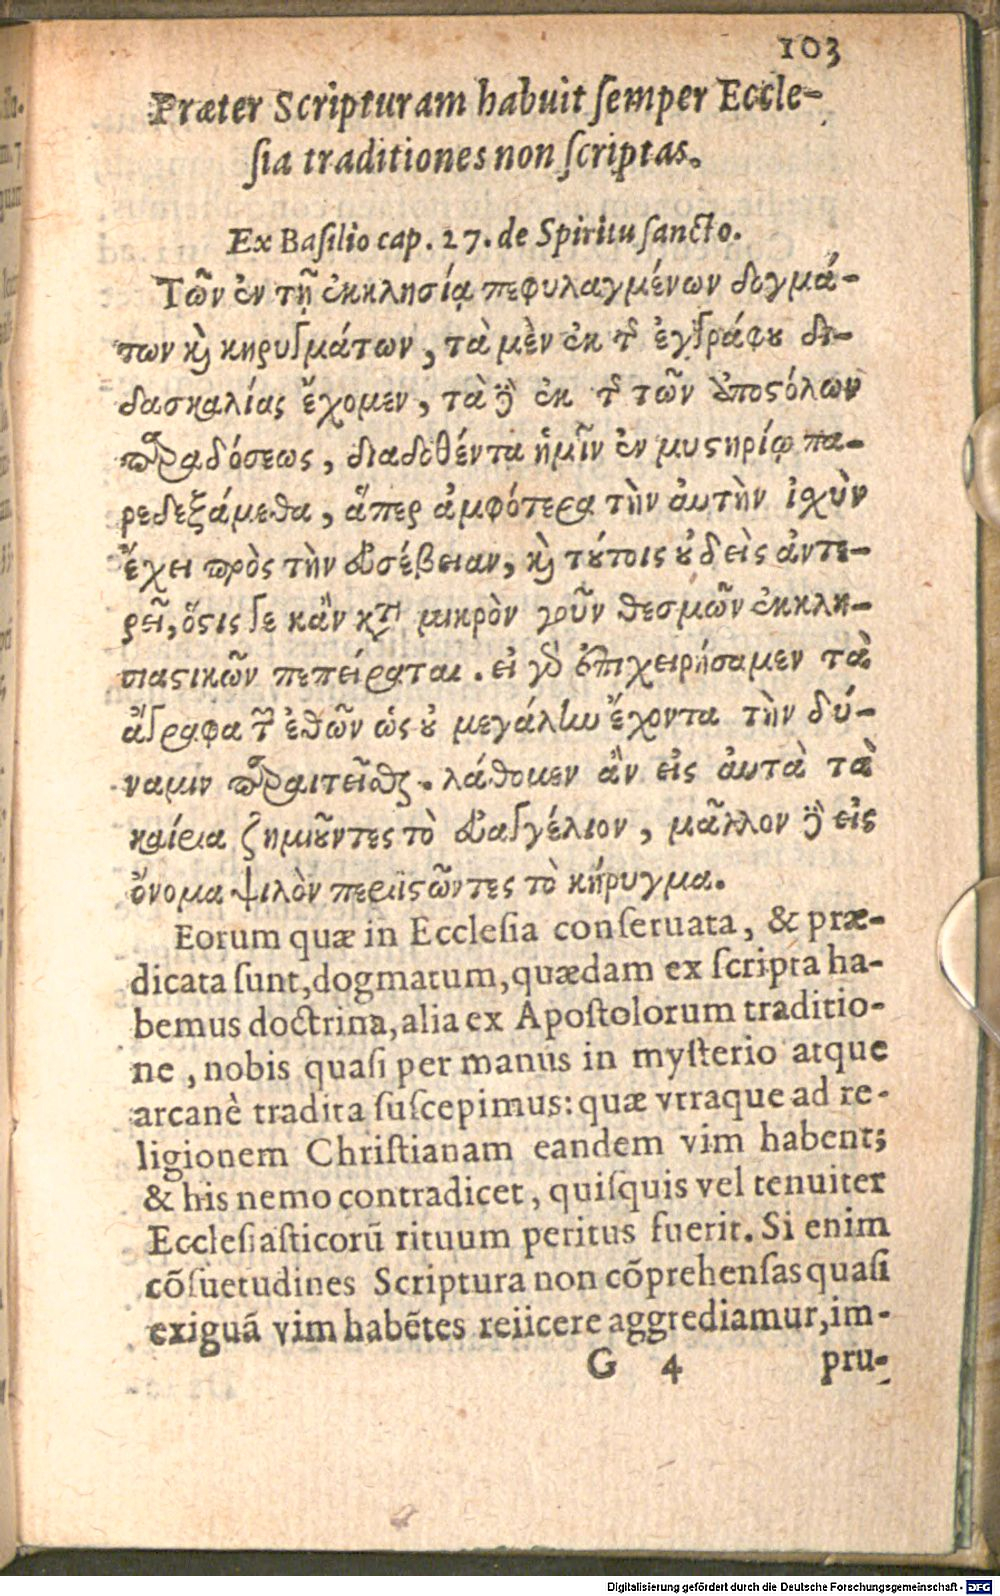 103
Præter Scripturam habuit ſemper Eccle-
ſia traditiones non ſcriptas.
Ex Baſilio cap. 27. de Spiritu ſancto.
Τῶν ἐν τῇ ἐκκλησίᾳ πεφυλαγμένων δογμά-
των κὶ κηρυγμάτων, τὰ μὲν ἐκ τῆς ἐγγράφου δι-
δασκαλίας ἔχομεν, τὰ δὲ ἐκ τῆς τῶν ἀποστόλων
παραδόσεως, διαδοθέντα ἡμῖν ἐν μυστηρίῳ πα-
ρεδεξάμεθα, ἅπερ ἀμφότερα τὴν ἀυτὴν ἰχὺν
ἔχει πρὸς τὴν ἐυσέβειαν, κὶ τούτοις οὐδεὶς ἀντε-
ρεῖ, ὅστις γε κἂν κτ μικρὸν γοῦν θεσμῶν ἐκκλη-
σιαστικῶν πεπείραται. εἰ γὰρ ἐπιχειρήσαμεν τὰ
ἄγραφα τῶν ἐθῶν ὡς οὐ μεγάλην ἔχοντα τὴν δύ-
ναμιν παραιτεῖσθαι. λάθοιμεν ἂν εἰς ἀυτὰ τὰ
καίρια ζημιοῦντες τὸ ἐυαγγέλιον, μᾶλλον δὲ εἰς
ὄνομα ψιλὸν περιϊστῶντες τὸ κήρυγμα.
Eorum quæ in Eccleſia conſeruata, & præ-
dicata ſunt, dogmatum, quædam ex ſcripta ha-
bemus doctrina, alia ex Apoſtolorum traditio-
ne, nobis quaſi per manus in myſterio atque
arcanè tradita ſuſcepimus: quæ vtraque ad re-
ligionem Chriſtianam eandem vim habent;
& his nemo contradicet, quiſquis vel tenuiter
Eccleſiaſticorũ rituum peritus fuerit. Si enim
cõſuetudines Scriptura non cõprehenſas quaſi
exiguã vim habẽtes reiicere aggrediamur, im-
G 4 pru-
Digitalisierung gefördert durch die Deutsche Forschungsgemeinschaft - DFG